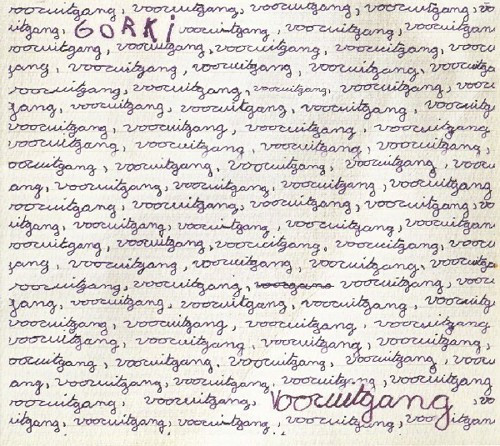 vooruitgang, vooruitgang, vooruitgang, vooruitgang, vo
uitgang, GORKI vooruitgang, vooruitgang, vooruitgang,
vooruitgang, vooruitgang, vooruitgang, vooruitgang, vooru
gang, vooruitgang, vooruitgang, vooruitgang, vooruitga
vooruitgang, vooruitgang, vooruitgang, vooruitgang, voor
gang, vooruitgang, vooruitgang, vooruitgang, vooruitg
vooruitgang, vooruitgang, vooruitgang, vooruitgang
vooruitgang, vooruitgang, vooruitgang, vooruitgang,
ooruitgang, vooruitgang, vooruitgang, vooruitgang, voor
ang, vooruitgang, vooruitgang, vooruitgang, vooruitgang
vooruitgang, vooruitgang, vooruitgang, vooruitgang,
uitgang, vooruitgang, vooruitgang, vooruitgang, vooruitgan
vooruitgang, vooruitgang, vooruitgang, vooruitgang, vooru
gang, vooruitgang, vooruitgang, vooruitgang, vooruitga
vooruitgang, vooruitgang, voorgang vooruitgang, voor
gang, vooruitgang, vooruitgang, vooruitgang, vooruitg
vooruitgang, vooruitgang, vooruitgang, vooruitgang
vooruitgang, vooruitgang, vooruitgang, vooruitgang,
ooruitgang, vooruitgang, vooruitgang, vooruitgang, voor
ang, vooruitgang, vooruitgang, vooruitgang, vooruitgang
vooruitgang, vooruitgang, Vooruitgang, vo
uitgang, vooruitgang, vooruitgang, vooruitgang, vooruitgan